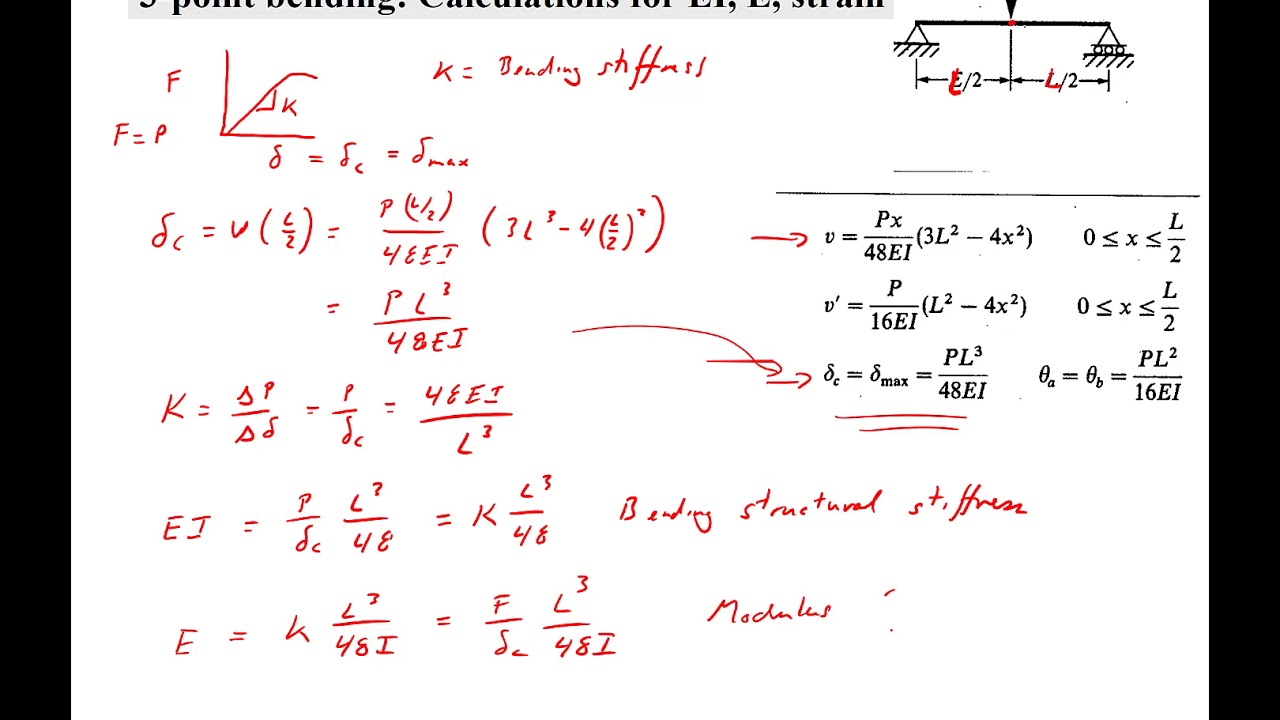 3-point bending: Calculations for EI, E, strain
F
K = Bending stiffness
K
F = P
δ = δc = δmax
L/2 L/2
δc = v(L/2) = P(L/2)/48EI (3L³ - 4(L/2)²)
= PL³/48EI
v = Px/48EI (3L² − 4x²) 0 ≤ x ≤ L/2
v′ = P/16EI (L² − 4x²) 0 ≤ x ≤ L/2
δc = δmax = PL³/48EI θa = θb = PL²/16EI
K = ΔP/Δδ = P/δc = 48EI/L³
EI = P/δc L³/48 = K L³/48 Bending structural stiffness
E = K L³/48I = F/δc L³/48I Modulus